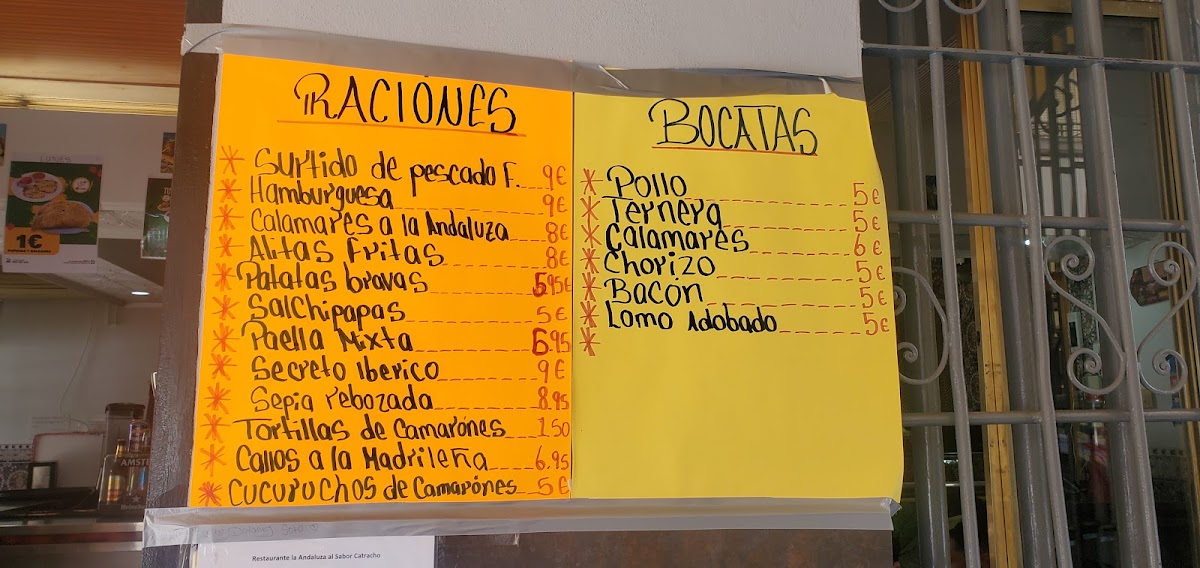 RACIONES
* Surtido de pescado F. 9€
* Hamburguesa 9€
* Calamares a la Andaluza 8€
* Alitas Fritas 8€
* Patatas bravas 5.95€
* SalChipapas 5€
* Paella Mixta 6.95
* Secreto Iberico 9€
* Sepia rebozada 8.95
* Tortillas de Camarónes 1.50
* Callos a la Madrileña 6.95
* Cucuruchos de Camarónes 5€
BOCATAS
* Pollo 5€
* Ternera 5€
* Calamares 6€
* Chorizo 5€
* Bacón 5€
* Lomo Adobado 5€
*
1€
AMSTE
Restaurante la Andaluza al Sabor Catracho